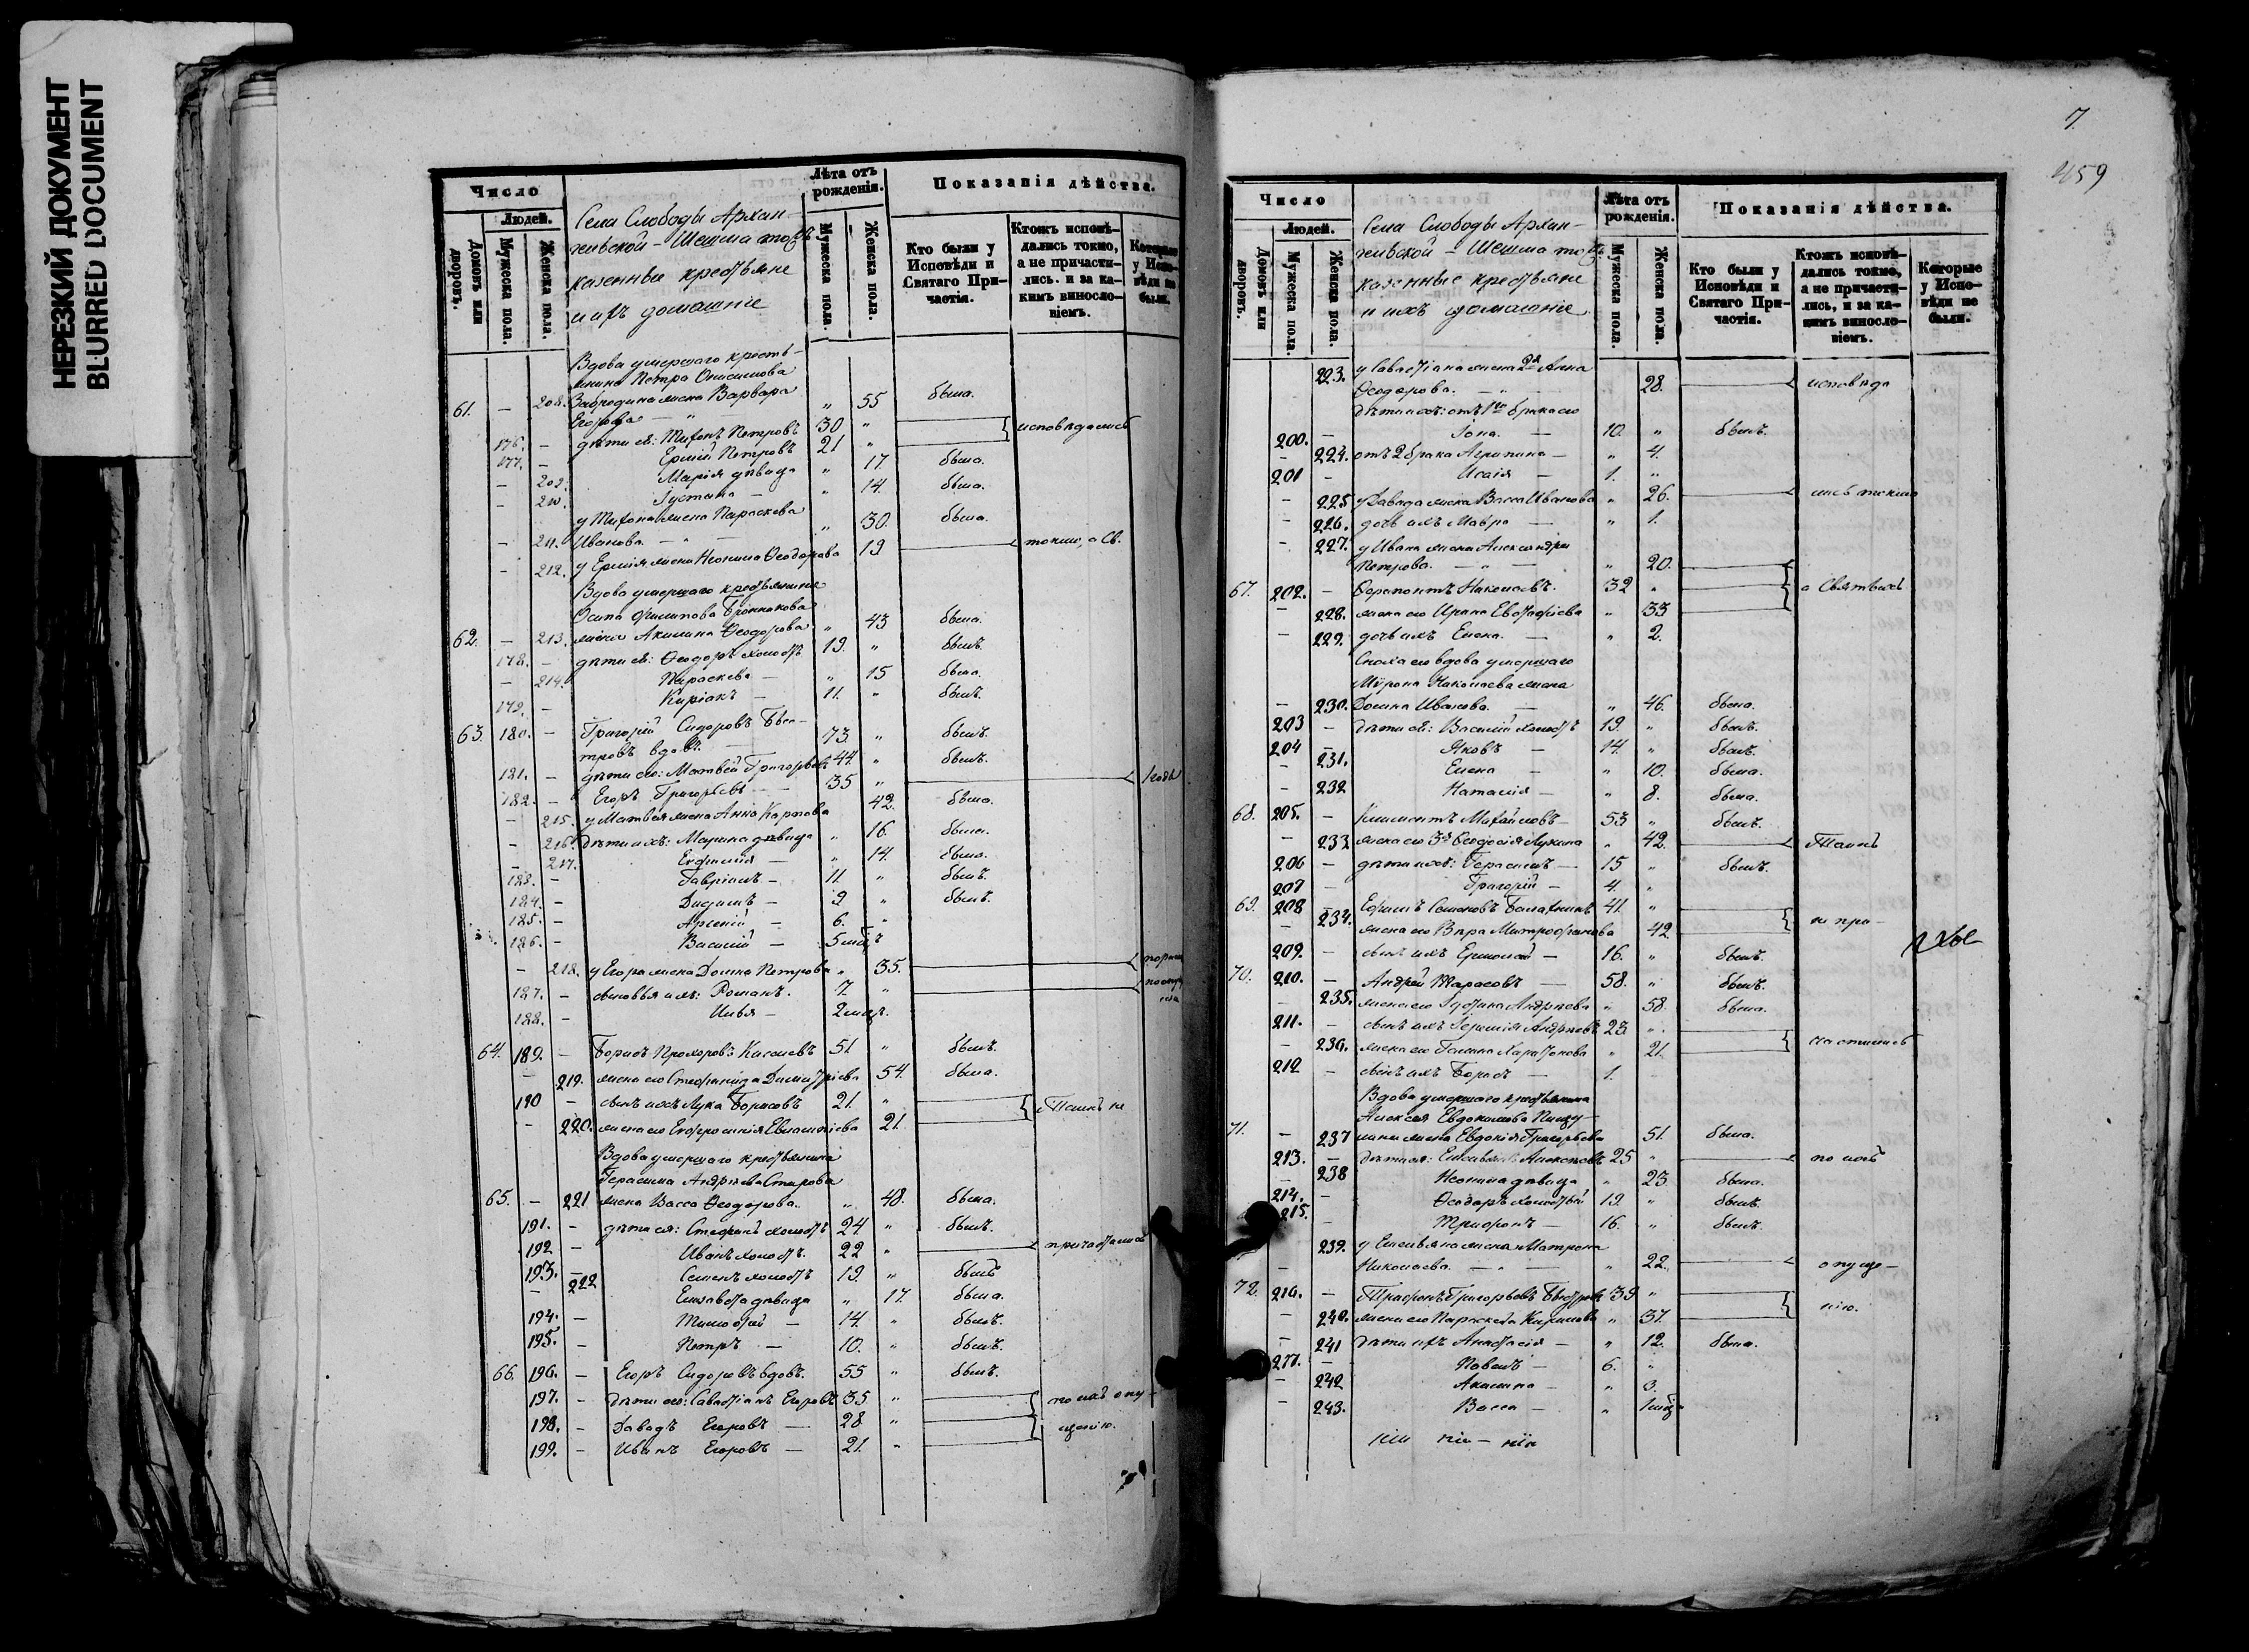 НЕРЕЗКИЙ ДОКУМЕНТ
BLURRED DOCUMENT
Число
Людей.
Домовъ или дворовъ.
Мужеска пола.
Женска пола.
Села Слободы Архан-
гельской – Шешма тожъ
казенные крестьяне
и ихъ домашніе
Лѣта отъ рожденія.
Мужеска пола.
Женска пола.
Показанія дѣйства.
Кто были у Исповѣди и Святаго При-
частія.
Ктожъ исповѣ-
дались токмо, а не причасти-
лись. и за ка-
кимъ виносло-
віемъ.
Которые у Испо-
вѣди не были.
Вдова умершаго кресть-
янина Петра Онисимова
61. – 208. Забродина жена Варвара
Егорова – " 55 была.
176. – дѣти ея: Тихонъ Петровъ 30 " исповѣдались
177. – Ермій Петровъ 21 "
– 209. Марія дѣвица " 17 была.
– 210. Іустина – " 14. была.
у Тихона жена Параскева
– 211. Иванова. – " 30. была.
– 212. у Ермія жена Неонила Ѳеодорова 19 токмо, а Св.
Вдова умершаго крестьянина
Осипа Филипова
62. – 213. жена Акилина Ѳеодорова " 43 была.
178. – дѣти ея: Ѳеодоръ холостъ 19. " былъ.
– 214. Параскева – " 15 была.
179. – Киріакъ – 11. " былъ.
63. 180. – Григорій Сидоровъ Быс-
тровъ вдовъ. 73. " былъ.
181. – дѣти его: Матвей Григорьевъ 44. " былъ.
182. – Егоръ Григорьевъ – 35 "
– 215. у Матвея жена Анна Карпова 42. была.
– 216. дѣти ихъ: Марина дѣвица " 16. была.
– 217. Евфимія – " 14. была.
183. – Гавріилъ – 11. " былъ.
184. – Дидимъ – 9 " былъ.
185. – Арсеній – 6. "
186. – Василій – 5 мѣц.
– 218. у Егора жена Домна Петрова " 35.
187. – сыновья ихъ: Романъ. 7. "
188. – Илья – 2 мѣц.
64. 189. – Борисъ Прохоровъ Киселевъ 51. " былъ.
– 219. жена его Стефанида Димитріева 54. была.
190 – сынъ ихъ Лука Борисовъ 21. " Таинъ не
– 220. жена его Евфросинія Евлампіева 21.
Вдова умершаго крестьянина
Герасима Андреева Старова
65. – 221 жена Васса Ѳеодорова. " 48. была.
191. – дѣти ея: Стефанъ холостъ 24. " былъ.
192 – Иванъ холостъ. 22 " причастились
193. – Семенъ холостъ 19. " былъ
– 222 Елизавета дѣвица " 17. была.
194. – Тимофей – 14. " былъ.
195. – Петръ – 10. " былъ.
66. 196. – Егоръ Сидоровъ вдовъ. 55 " былъ.
197. – дѣти его: Савастіанъ Егоровъ 35. " по ихъ опу-
198. – Давидъ Егоровъ – 28. " щенію.
199. – Иванъ Егоровъ – 21. "
7.
459
Число
Людей.
Домовъ или дворовъ.
Мужеска пола.
Женска пола.
Села Слободы Архан-
гельской – Шешма тожъ
казенные крестьяне
и ихъ домашніе
Лѣта отъ рожденія.
Мужеска пола.
Женска пола.
Показанія дѣйства.
Кто были у Исповѣди и Святаго При-
частія.
Ктожъ исповѣ-
дались токмо, а не причасти-
лись, и за ка-
кимъ виносло-
віемъ.
Которые у Испо-
вѣди не были.
223. у Савастіана жена 2я Анна
Ѳеодорова. – " – 28. исповѣда
дѣти ихъ: отъ 1го брака его
200. – Іона. – 10. " былъ.
– 224. отъ 2 брака Агрипина – " 4.
201 – Исаія – 1. "
– 225 у Давида жена Васса Иванова " 26. лись токмо
– 226. дочь ихъ Мавра – " 1.
– 227. у Ивана жена Александра
Петрова. – " – " 20.
67. 202. – Ферапонтъ Николаевъ. 32 " а Святыхъ
– 228. жена его Ирина Евстафіева " 33
– 229. дочь ихъ Елена. – " 2.
Сноха его вдова умершаго
Мурона Николаева жена
– 230. Домна Иванова. – " 46. была.
203 – дѣти ея: Василій холостъ 19. " былъ.
204 – Яковъ – 14. " былъ.
– 231. Елена – " 10. была.
– 232 Наталія – " 8. была.
68. 205. – Климентъ Михайловъ – 53 " былъ.
– 233 жена его 3я Ѳеодосія Лукина " 42. Таинъ
206 – дѣти ихъ: Герасимъ – 15 " былъ.
207 – Григорій – 4. "
69. 208 – Ефимъ Семеновъ Балахнинъ 41. " не при-
– 234. жена его Вѣра Митрофанова 42
209. – сынъ ихъ Ермолай – 16. " былъ.
70. 210. – Андрей Тарасовъ – 58. " былъ.
– 235. жена его Іустина Андреева " 58. была.
211. – сынъ ихъ Іеремія Андреевъ 23 " частились
– 236. жена его Галина Харитонова " 21.
212 – сынъ ихъ Борисъ – 1.
Вдова умершаго крестьянина
Алексея Евдокимова
71. – 237 жена Евдокія Григорьева 51. была.
213. – дѣти ея: Емельянъ Алексеевъ 25 " по ихъ
– 238 Неонила дѣвица " 23 была.
214. – Ѳеодоръ холостый 19. " былъ.
215. – Трифонъ – 16. " былъ.
239. у Емельяна жена Матрона
– Николаева. – " – " 22. опуще-
72. 216. – Трифонъ Григорьевъ Быстровъ 39 " нію.
– 240. жена его Параскева Кирилова " 37.
– 241 дѣти ихъ Анастасія – " 12. была.
217. – Павелъ – 6. "
– 242 Акилина – " 3.
– 243. Васса – " 1 мѣц.